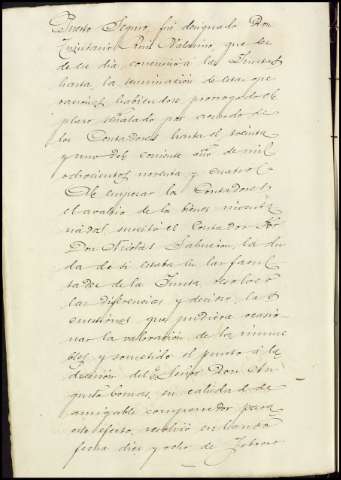 Puesto Seguro, fué designado Don
Quintiano Ruiz Valarino, que des
de ese dia concurrió a las Juntas
hasta la terminacion de estas ope
raciones habiendose prorrogado el
plazo señalado por acuerdo de
los Contadores hasta el treinta
y uno del corriente año de mil
ochocientos noventa y cuatro.
Al empezar los Contadores
el avaluo de los bienes
suscitó el Contador Sor
Don Nicolas la du
da de si estaba en las facul
tades de la Junta resolver
las diferencias y decidir las
cuestiones que pudiera ocasio
nar la valoracion de los inmue
bles y sometido el punto á la
decision del Eº Señor Don Au
gusto Comas, en calidad de
amigable componedor para
este efecto, resolvió en laudo
fecha diez y ocho de Febrero